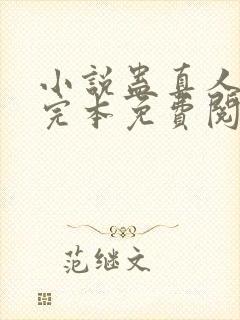 小説蛊真人
完本免費閱
范继文